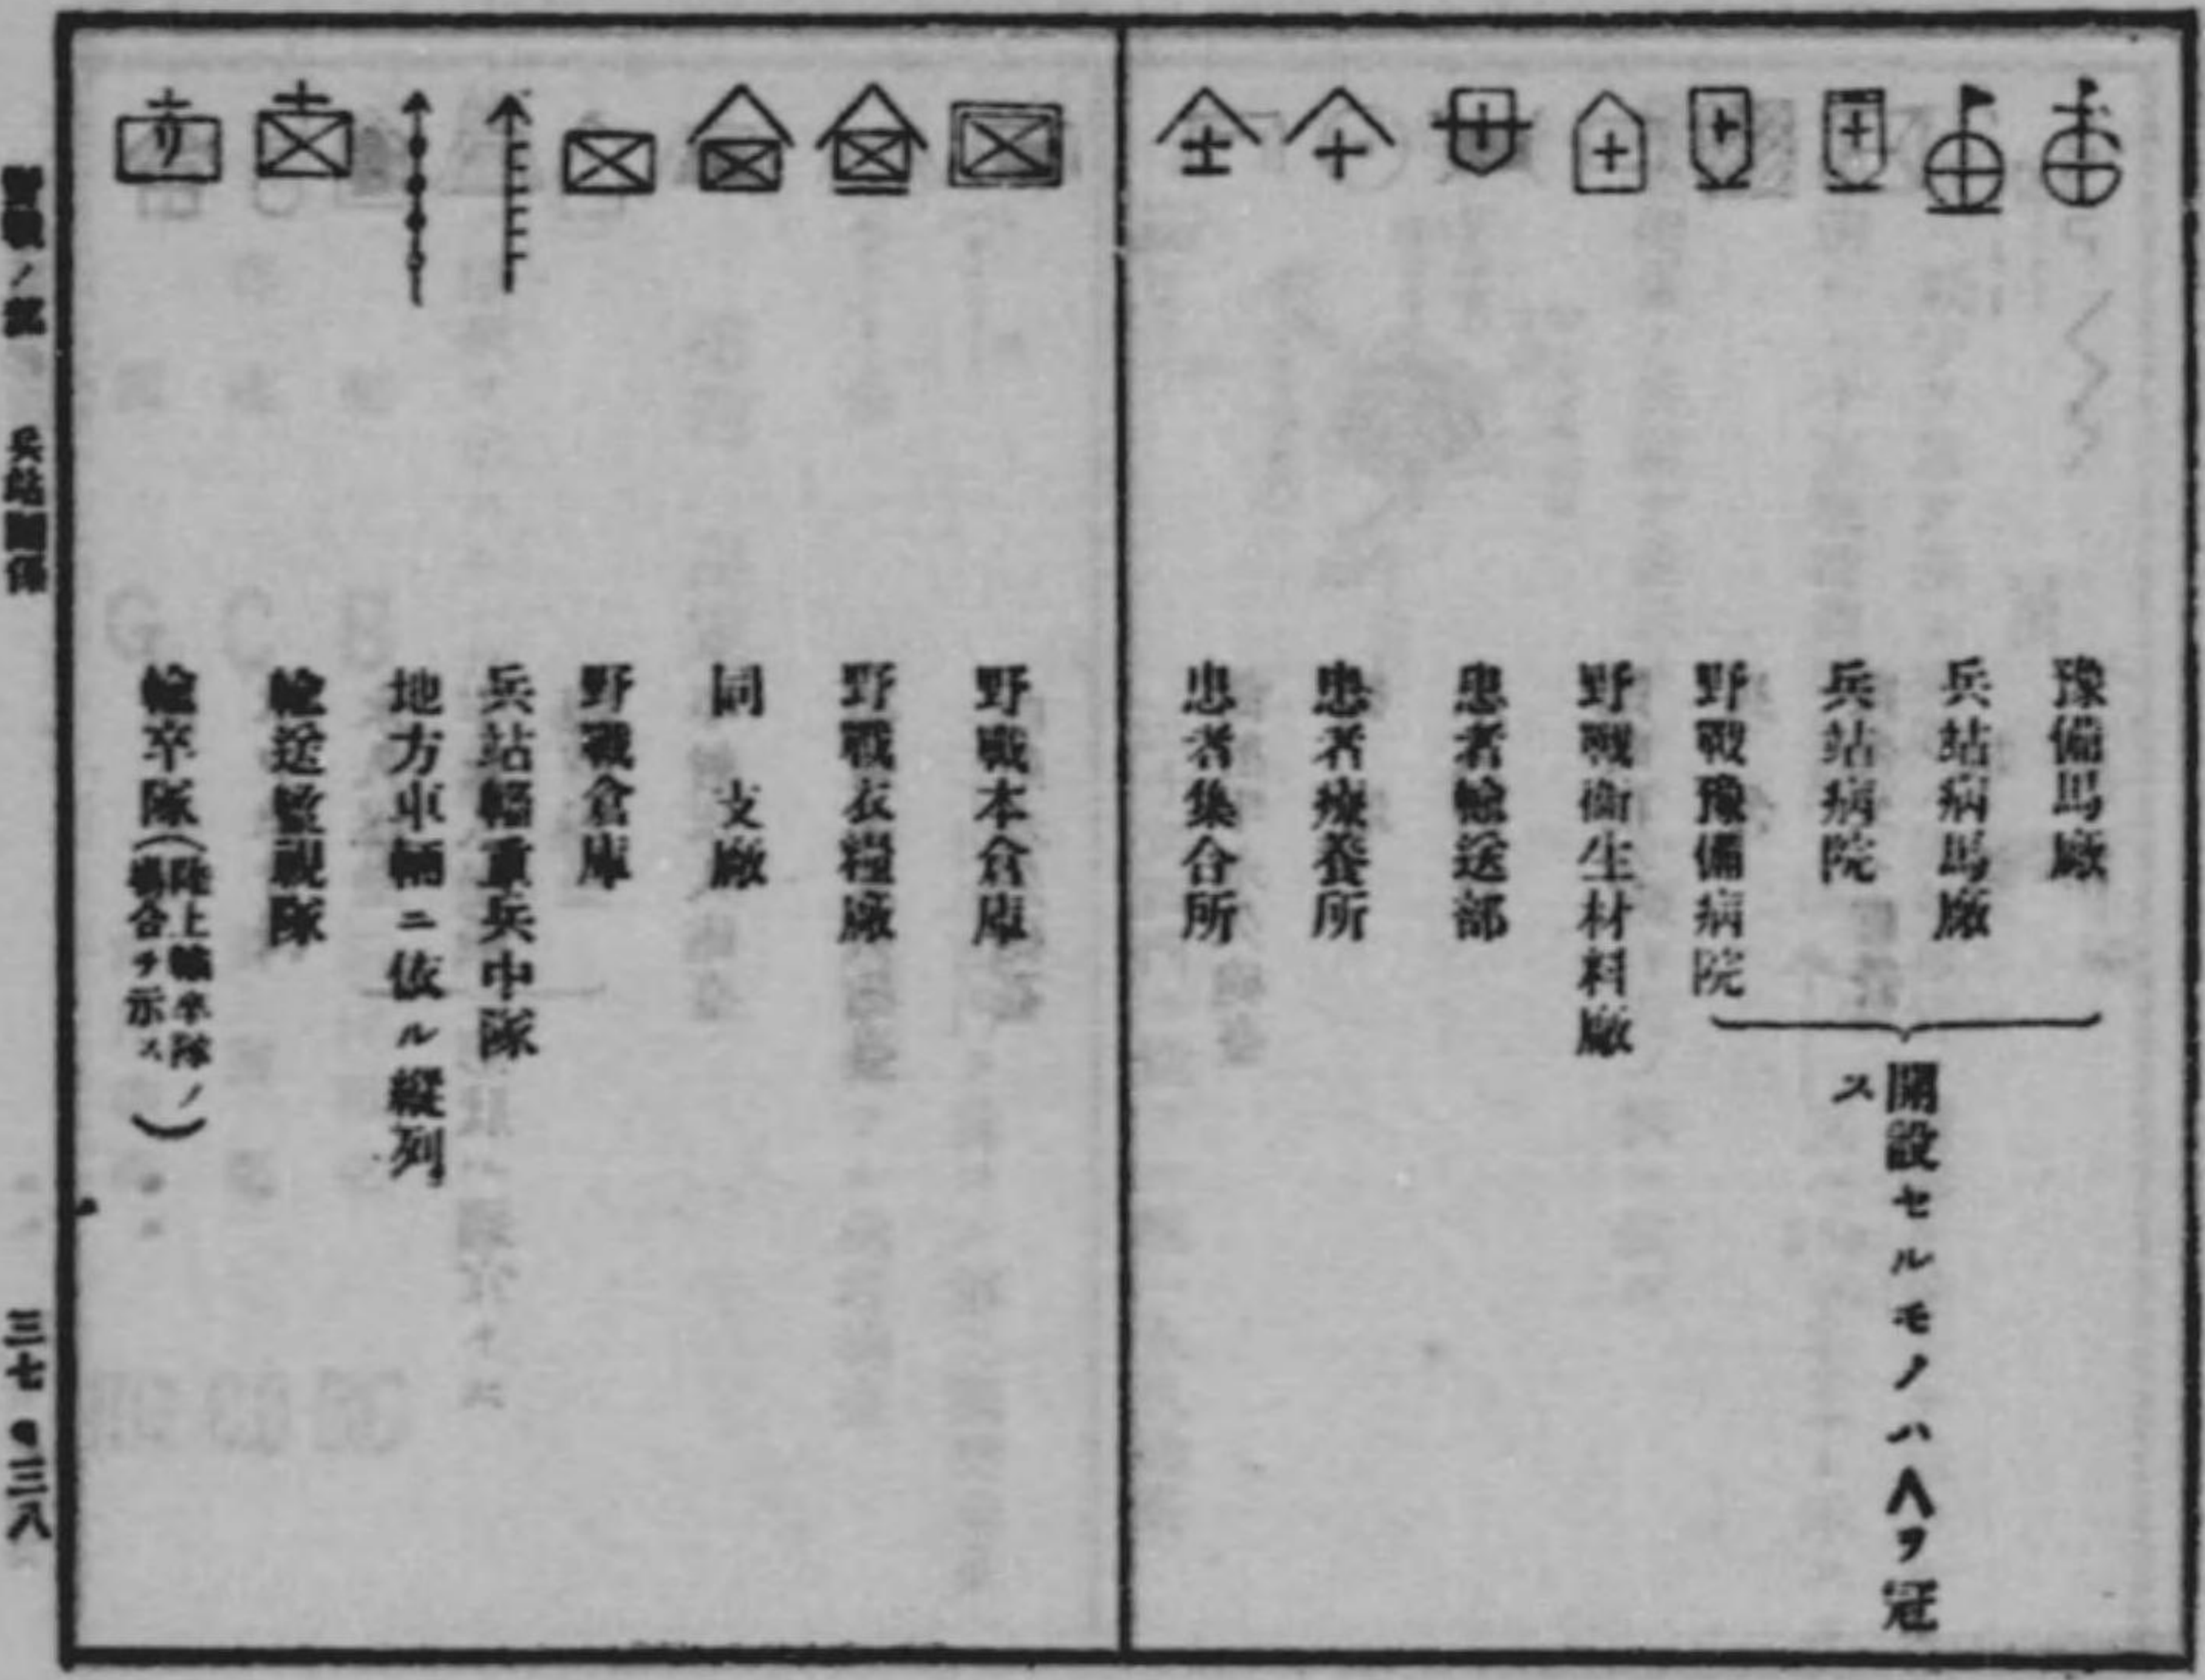 豫備馬廠
兵站病馬廠
兵站病院
野戰豫備病院
開設セルモノハ∧ヲ冠
ス
野戰衞生材料廠
患者輸送部
患者療養所
患者集合所
野戰本倉庫
野戰衣糧廠
同支廠
野戰倉庫
兵站輜重兵中隊
地方車輛ニ依ル縱列
輸送監視隊
輸卒隊(陸上輸卒隊ノ
場合ヲ示ス)
リ
ノ 兵站關係 三七・三八